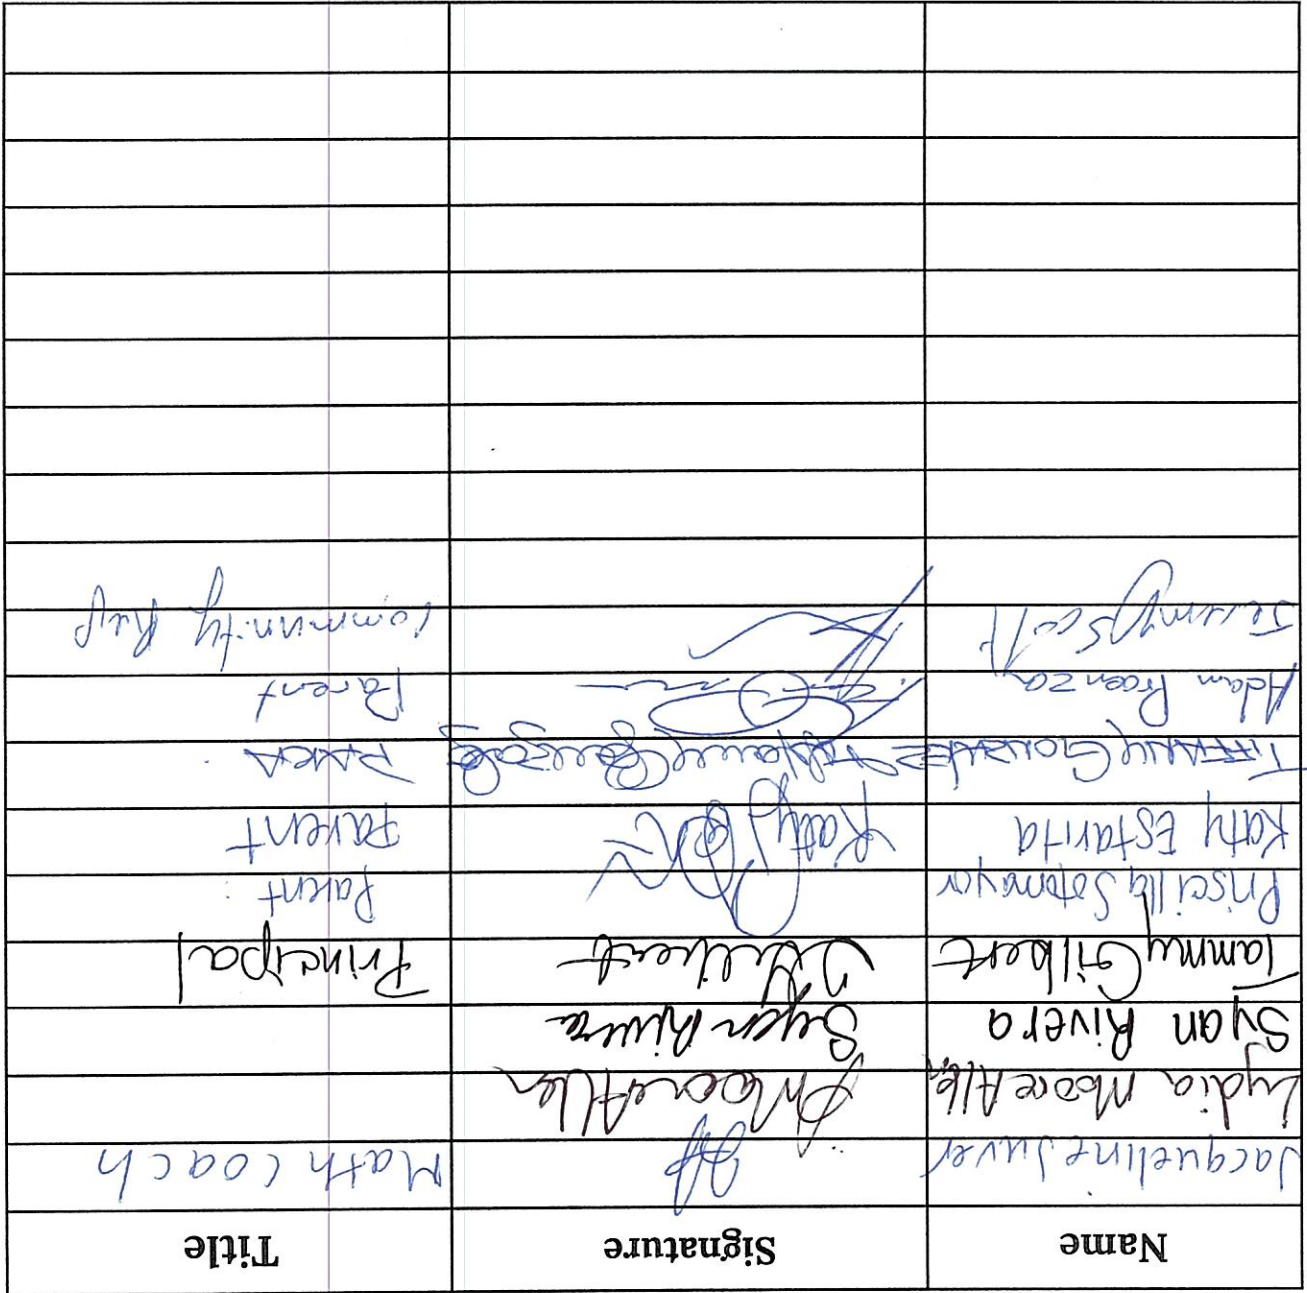 Name Signature Title
Jacqueline Juver Math Coach
Lydia Moore Allen LMoore Allen
Syan Rivera Syan Rivera
Tammy Gilbert TGilbert Principal
Priscilla Sotomayor Parent
Katy Estarita Katy Parent
Tiffany Gonzalez Tiffany Gonzalez
Adam Parent
Jeremy Scott Community Rep